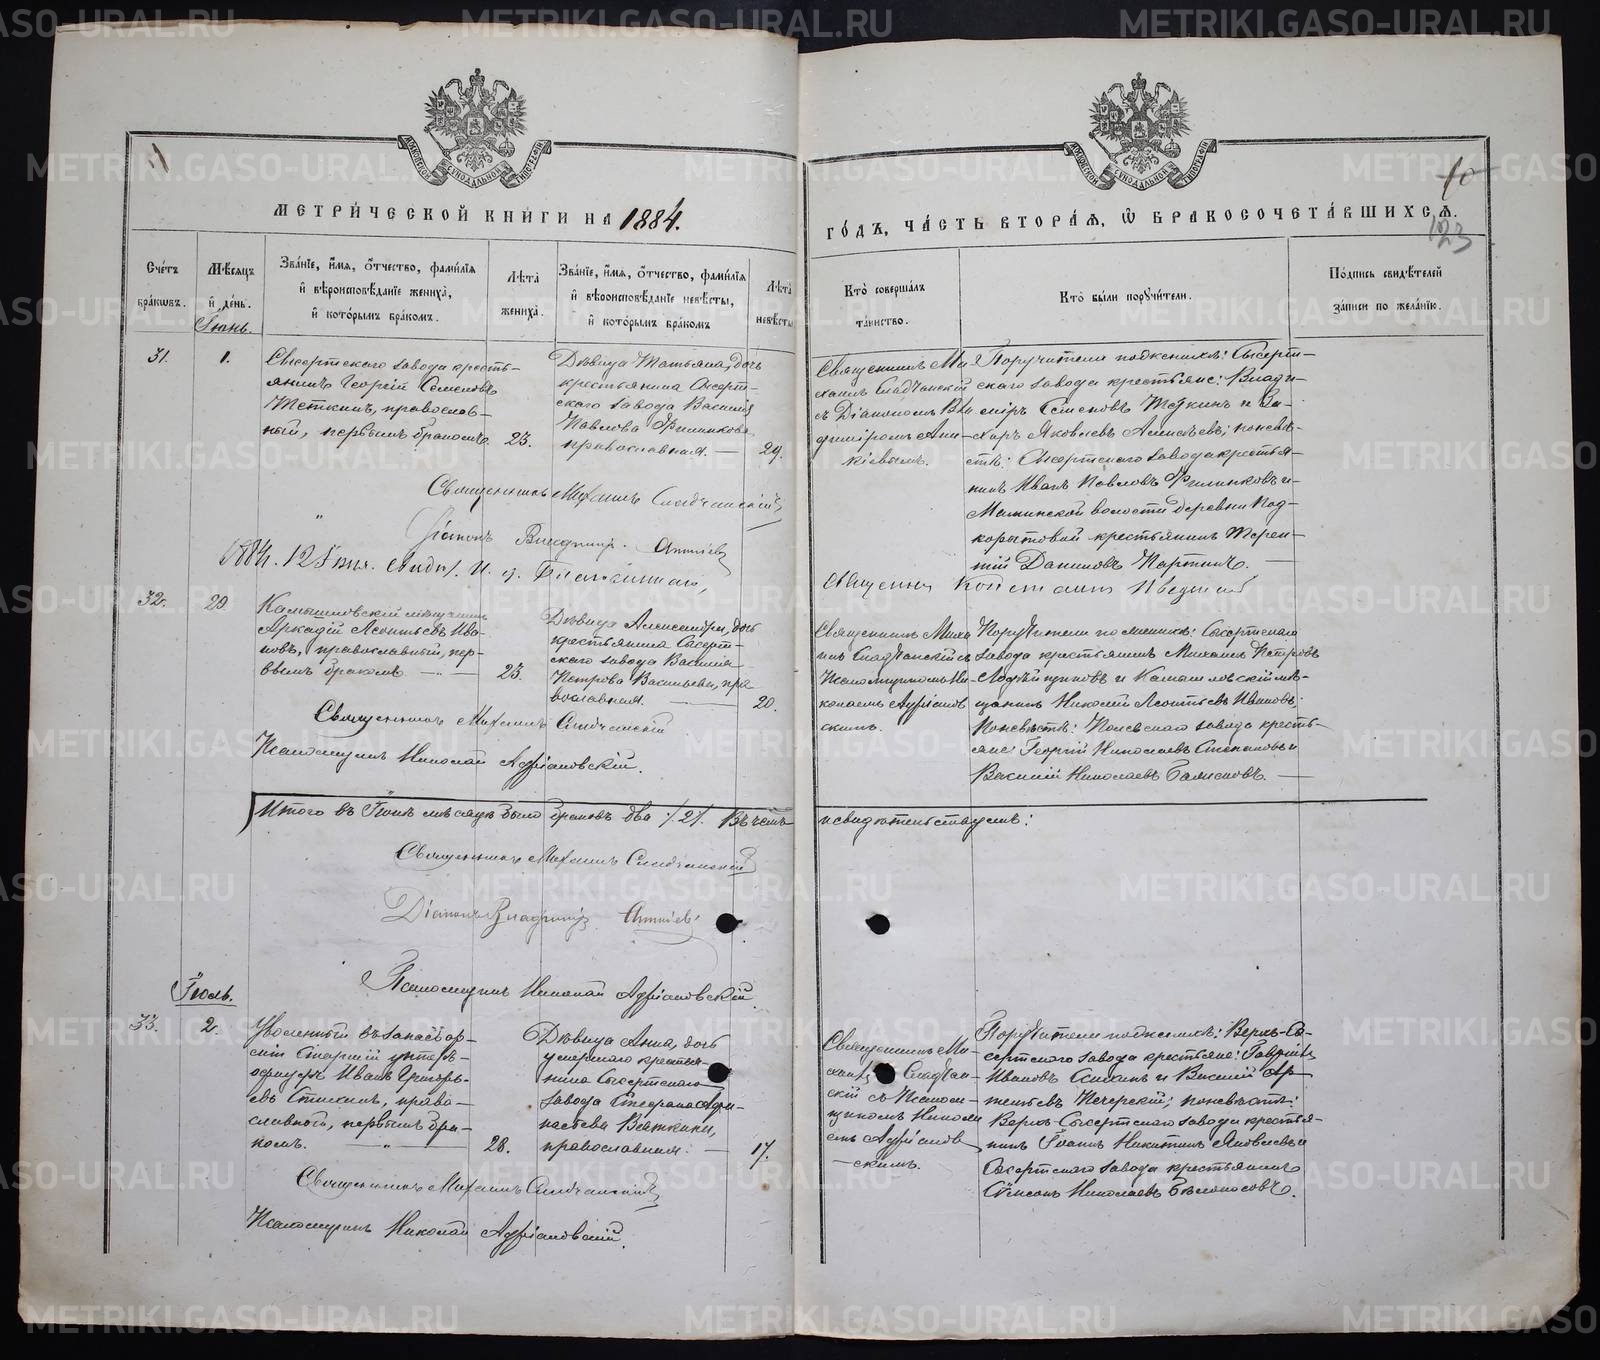 МЕТРИЧЕСКОЙ КНИГИ НА 1884.
ГОДЪ, ЧАСТЬ ВТОРАЯ, Ѡ БРАКОСОЧЕТАВШИХСЯ.
10
123
МОСКОВСКОЙ СѴНОДАЛЬНОЙ ТИПОГРАФІИ
МОСКОВСКОЙ СѴНОДАЛЬНОЙ ТИПОГРАФІИ
Счетъ браковъ.
Мѣсяцъ и день.
Званіе, имя, отчество, фамилія и вѣроисповѣданіе жениха, и которымъ бракомъ.
Лѣта жениха.
Званіе, имя, отчество, фамилія и вѣроисповѣданіе невѣсты, и которымъ бракомъ
Лѣта невѣсты
Кто совершалъ таинство.
Кто были поручители.
Подпись свидѣтелей записи по желанію.
Іюнь.
31.
1.
Сысертскаго завода кресть-
янинъ Георгій Семеновъ
Теткинъ, православ-
ный, первымъ бракомъ.
23.
Дѣвица Татьяна, дочь
крестьянина Сысерт-
скаго завода Василія
Павлова Филинкова
православная. —
29.
Священникъ Ми-
хаилъ Сладчанскій
съ Діакономъ Вла-
диміромъ Ани-
кіевымъ.
Поручители по женихѣ: Сысерт-
скаго завода крестьяне: Влади-
міръ Семеновъ Теткинъ и За-
харъ Яковлевъ Алексѣевъ; по невѣ-
стѣ: Сысертскаго завода крестья-
нинъ Иванъ Павловъ Филинковъ и
Маминской волости деревни Под-
корытовой крестьянинъ Терен-
тій Даниловъ
Священникъ Михаилъ Сладчанскій
Діаконъ Владиміръ Аникіев
1884. 12 Іюня.
32.
20.
Камышловскій мѣщанинъ
Аркадій Леонтьевъ Ива-
новъ, православный, пер-
вымъ бракомъ —
23.
Дѣвица Александра, дочь
крестьянина Сысерт-
скаго завода Василія
Петрова Васильева, пра-
вославная. —
20.
Священникъ Миха-
илъ Сладчанскій съ
Псаломщикомъ Ни-
колаемъ Адріанов-
скимъ.
Поручители по женихѣ: Сысертскаго
завода крестьянинъ Михаилъ Петровъ
и Камышловскій мѣ-
щанинъ Николай Леонтьевъ Ивановъ;
По невѣстѣ: завода кресть-
яне: Георгій Николаевъ Степановъ и
Василій Николаевъ
Священникъ Михаилъ Сладчанскій
Псаломщикъ Николай Адріановскій.
Итого въ Іюнѣ мѣсяцѣ было браковъ два /2/. Въ чемъ
и свидѣтельствуемъ:
Священникъ Михаилъ Сладчанскій
Діаконъ Владиміръ Аникіев
Псаломщикъ Николай Адріановскій
Іюль.
33.
2.
Уволенный въ запасъ ар-
міи старшій унтеръ-
офицеръ Иванъ Григорь-
евъ православный, первымъ бра-
комъ. —
28.
Дѣвица Анна, дочь
умершаго крестья-
нина Сысертскаго
завода Стефана
Вяткина,
православная. —
17.
Священникъ Ми-
хаилъ Сладчан-
скій съ Псалом-
щикомъ Никола-
емъ Адріанов-
скимъ.
Поручители по женихѣ: Верхъ-Сы-
сертскаго завода крестьяне: Гавріилъ
Ивановъ и Василій
Печерскій; по невѣстѣ:
Верхъ-Сысертскаго завода крестья-
нинъ Іоаннъ Никитинъ Яковлевъ и
Сысертскаго завода крестьянинъ
Симеонъ Николаевъ Бѣлоносовъ.
Священникъ Михаилъ Сладчанскій
Псаломщикъ Николай Адріановскій.
METRIKI.GASO-URAL.RU